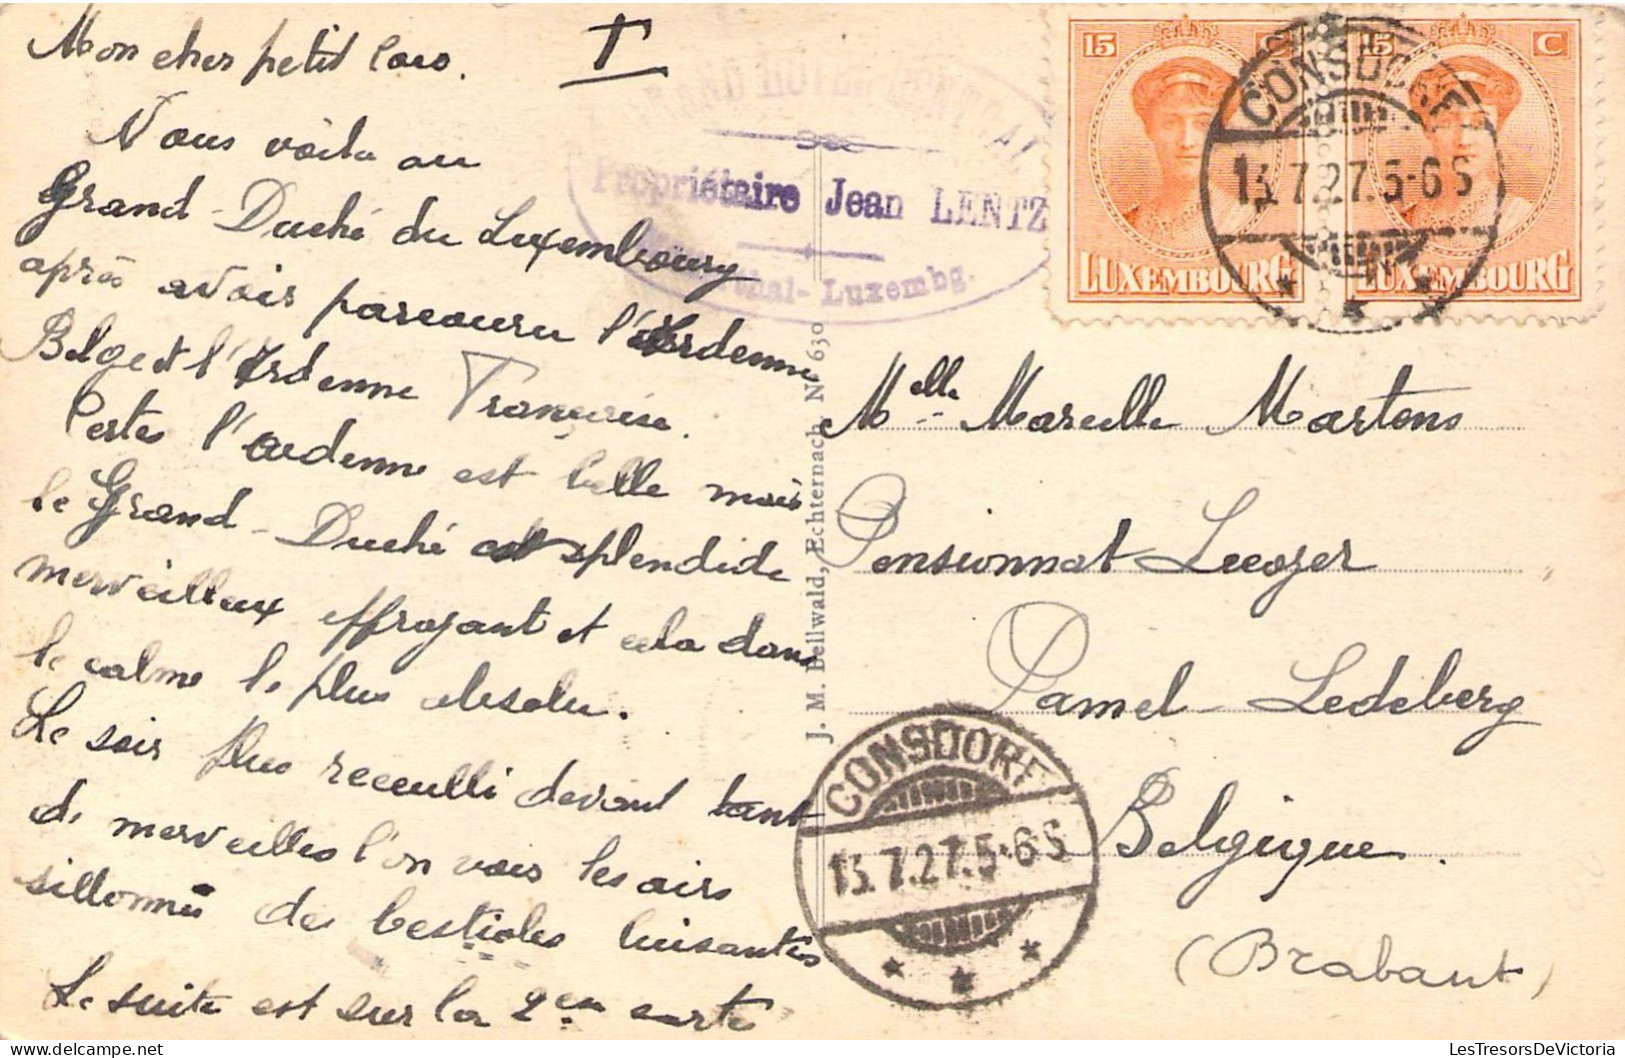 Mon cher petit
T
Nous voila au
Grand-Duché du Luxembourg
après avoir parcouru l'Ardenne
Belge et l'Ardenne Française.
Certes l'ardenne est belle mais
le Grand-Duché est splendide
merveilleux effrayant et cela dans
le calme le plus absolu.
Le soir plus receuilli devant tant
de merveilles l'on vois les airs
sillonnés des bestioles luisantes
Le suite est sur la 2em carte
GRAND HOTEL CENTRAL
Propriétaire Jean LENTZ
thal-Luxembg.
J. M. Bellwald, Echternach. N° 630
15
LUXEMBOURG
15 C
LUXEMBOURG
CONSDORF
13.7.27.5-6S
Melle Marcelle Martens
Pensionnat
Pamel-Ledeberg
Belgique.
(Brabant)
CONSDORF
13.7.27.5-6S
LesTresorsDeVictoria